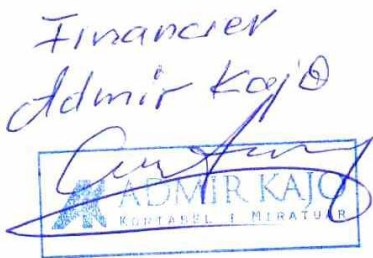 Financier
Admir Kajo
ADMIR KAJO
KONTABEL I MIRATUAR